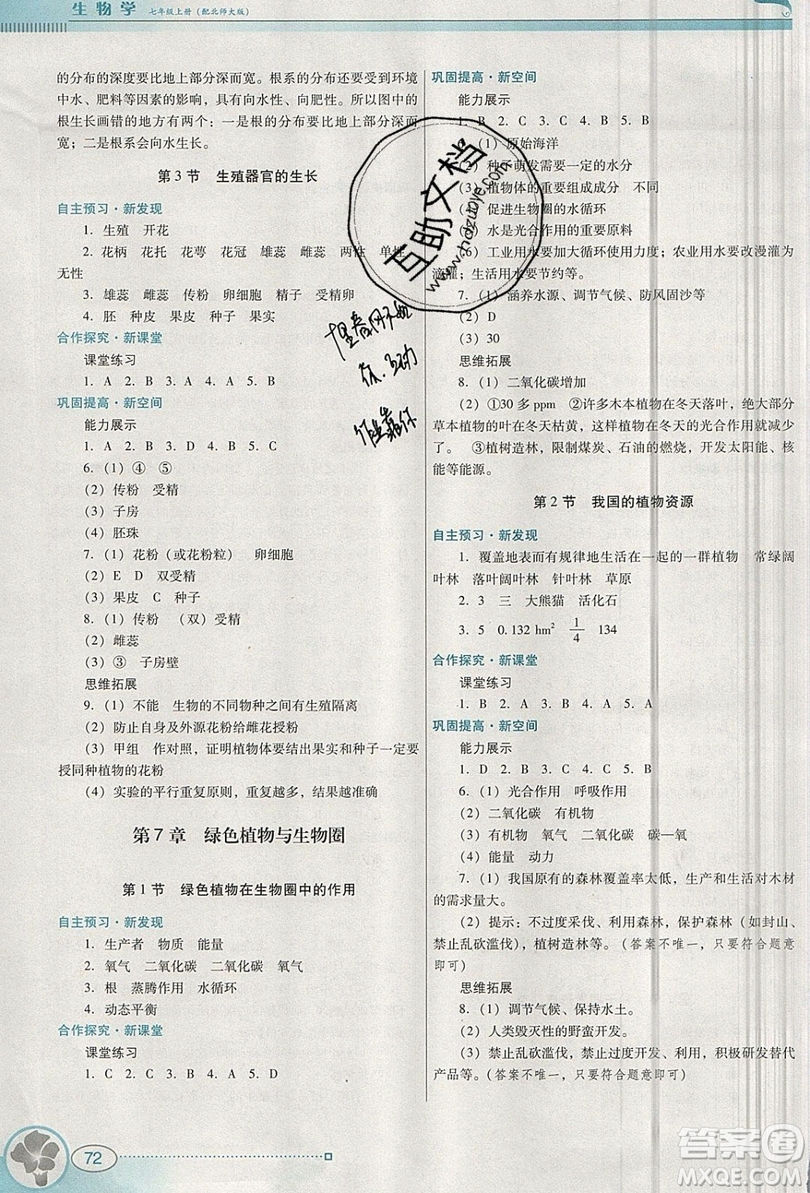 生物学 七年级上册（配北师大版）
的分布的深度要比地上部分深而宽。根系的分布还要受到环境
中水、肥料等因素的影响，具有向水性、向肥性。所以图中的
根生长画错的地方有两个：一是根的分布要比地上部分深而
宽；二是根系会向水生长。
第3节 生殖器官的生长
自主预习·新发现
1. 生殖 开花
2. 花柄 花托 花萼 花冠 雄蕊 雌蕊 两性 单性
无性
3. 雄蕊 雌蕊 传粉 卵细胞 精子 受精卵
4. 胚 种皮 果皮 种子 果实
合作探究·新课堂
课堂练习
1. A 2. B 3. A 4. A 5. B
巩固提高·新空间
能力展示
1. A 2. B 3. D 4. C 5. B
6.（1）④ ⑤
（2）传粉 受精
（3）子房
（4）胚珠
7.（1）花粉（或花粉粒） 卵细胞
（2）E D 双受精
（3）果皮 C 种子
8.（1）传粉 （双）受精
（2）雌蕊
（3）③ 子房壁
思维拓展
9.（1）不能 生物的不同物种之间有生殖隔离
（2）防止自身及外源花粉给雌花授粉
（3）甲组 作对照，证明植物体要结出果实和种子一定要
授同种植物的花粉
（4）实验的平行重复原则，重复越多，结果越准确
第7章 绿色植物与生物圈
第1节 绿色植物在生物圈中的作用
自主预习·新发现
1. 生产者 物质 能量
2. 氧气 二氧化碳 二氧化碳 氧气
3. 根 蒸腾作用 水循环
4. 动态平衡
合作探究·新课堂
课堂练习
1. C 2. C 3. B 4. A 5. D
72
巩固提高·新空间
能力展示
1. B 2. C 3. C
6.（1）原始海洋
（2）种子萌发需要一定的水分
（3）植物体的重要组成成分 不同
促进生物圈的水循环
水是光合作用的重要原料
（6）工业用水要加大循环使用力度；农业用水要改漫灌为
滴灌；生活用水要节约等。
7.（1）涵养水源、调节气候、防风固沙等
（2）D
（3）30
思维拓展
8.（1）二氧化碳增加
（2）①30多 ppm ②许多木本植物在冬天落叶，绝大部分
草本植物的叶在冬天枯黄，这样植物在冬天的光合作用就减少
了。 ③植树造林，限制煤炭、石油的燃烧，开发太阳能、水能、
核能等能源。
第2节 我国的植物资源
自主预习·新发现
1. 覆盖地表而有规律地生活在一起的一群植物 常绿阔
叶林 落叶阔叶林 针叶林 草原
2. 3 三 大熊猫 活化石
3. 5 0.132 hm² 1/4 134
合作探究·新课堂
课堂练习
1. B 2. A 3. B 4. A 5. A
巩固提高·新空间
能力展示
1. D 2. B 3. C 4. C 5. B
6.（1）光合作用 呼吸作用
（2）二氧化碳 有机物
（3）有机物 氧气 二氧化碳 碳—氧
（4）能量 动力
7.（1）我国原有的森林覆盖率太低，生产和生活对木材
的需求量大。
（2）提示：不过度采伐、利用森林，保护森林（如封山、
禁止乱砍滥伐），植树造林等。（答案不唯一，只要符合题意
即可）
思维拓展
8.（1）调节气候、保持水土。
（2）人类毁灭性的野蛮开发。
（3）禁止乱砍滥伐，不过度开发、利用，积极研发替代
产品等。（答案不唯一，只要符合题意即可）
互助文档
www.hdzuoye.com
答案圈
MXQE.COM